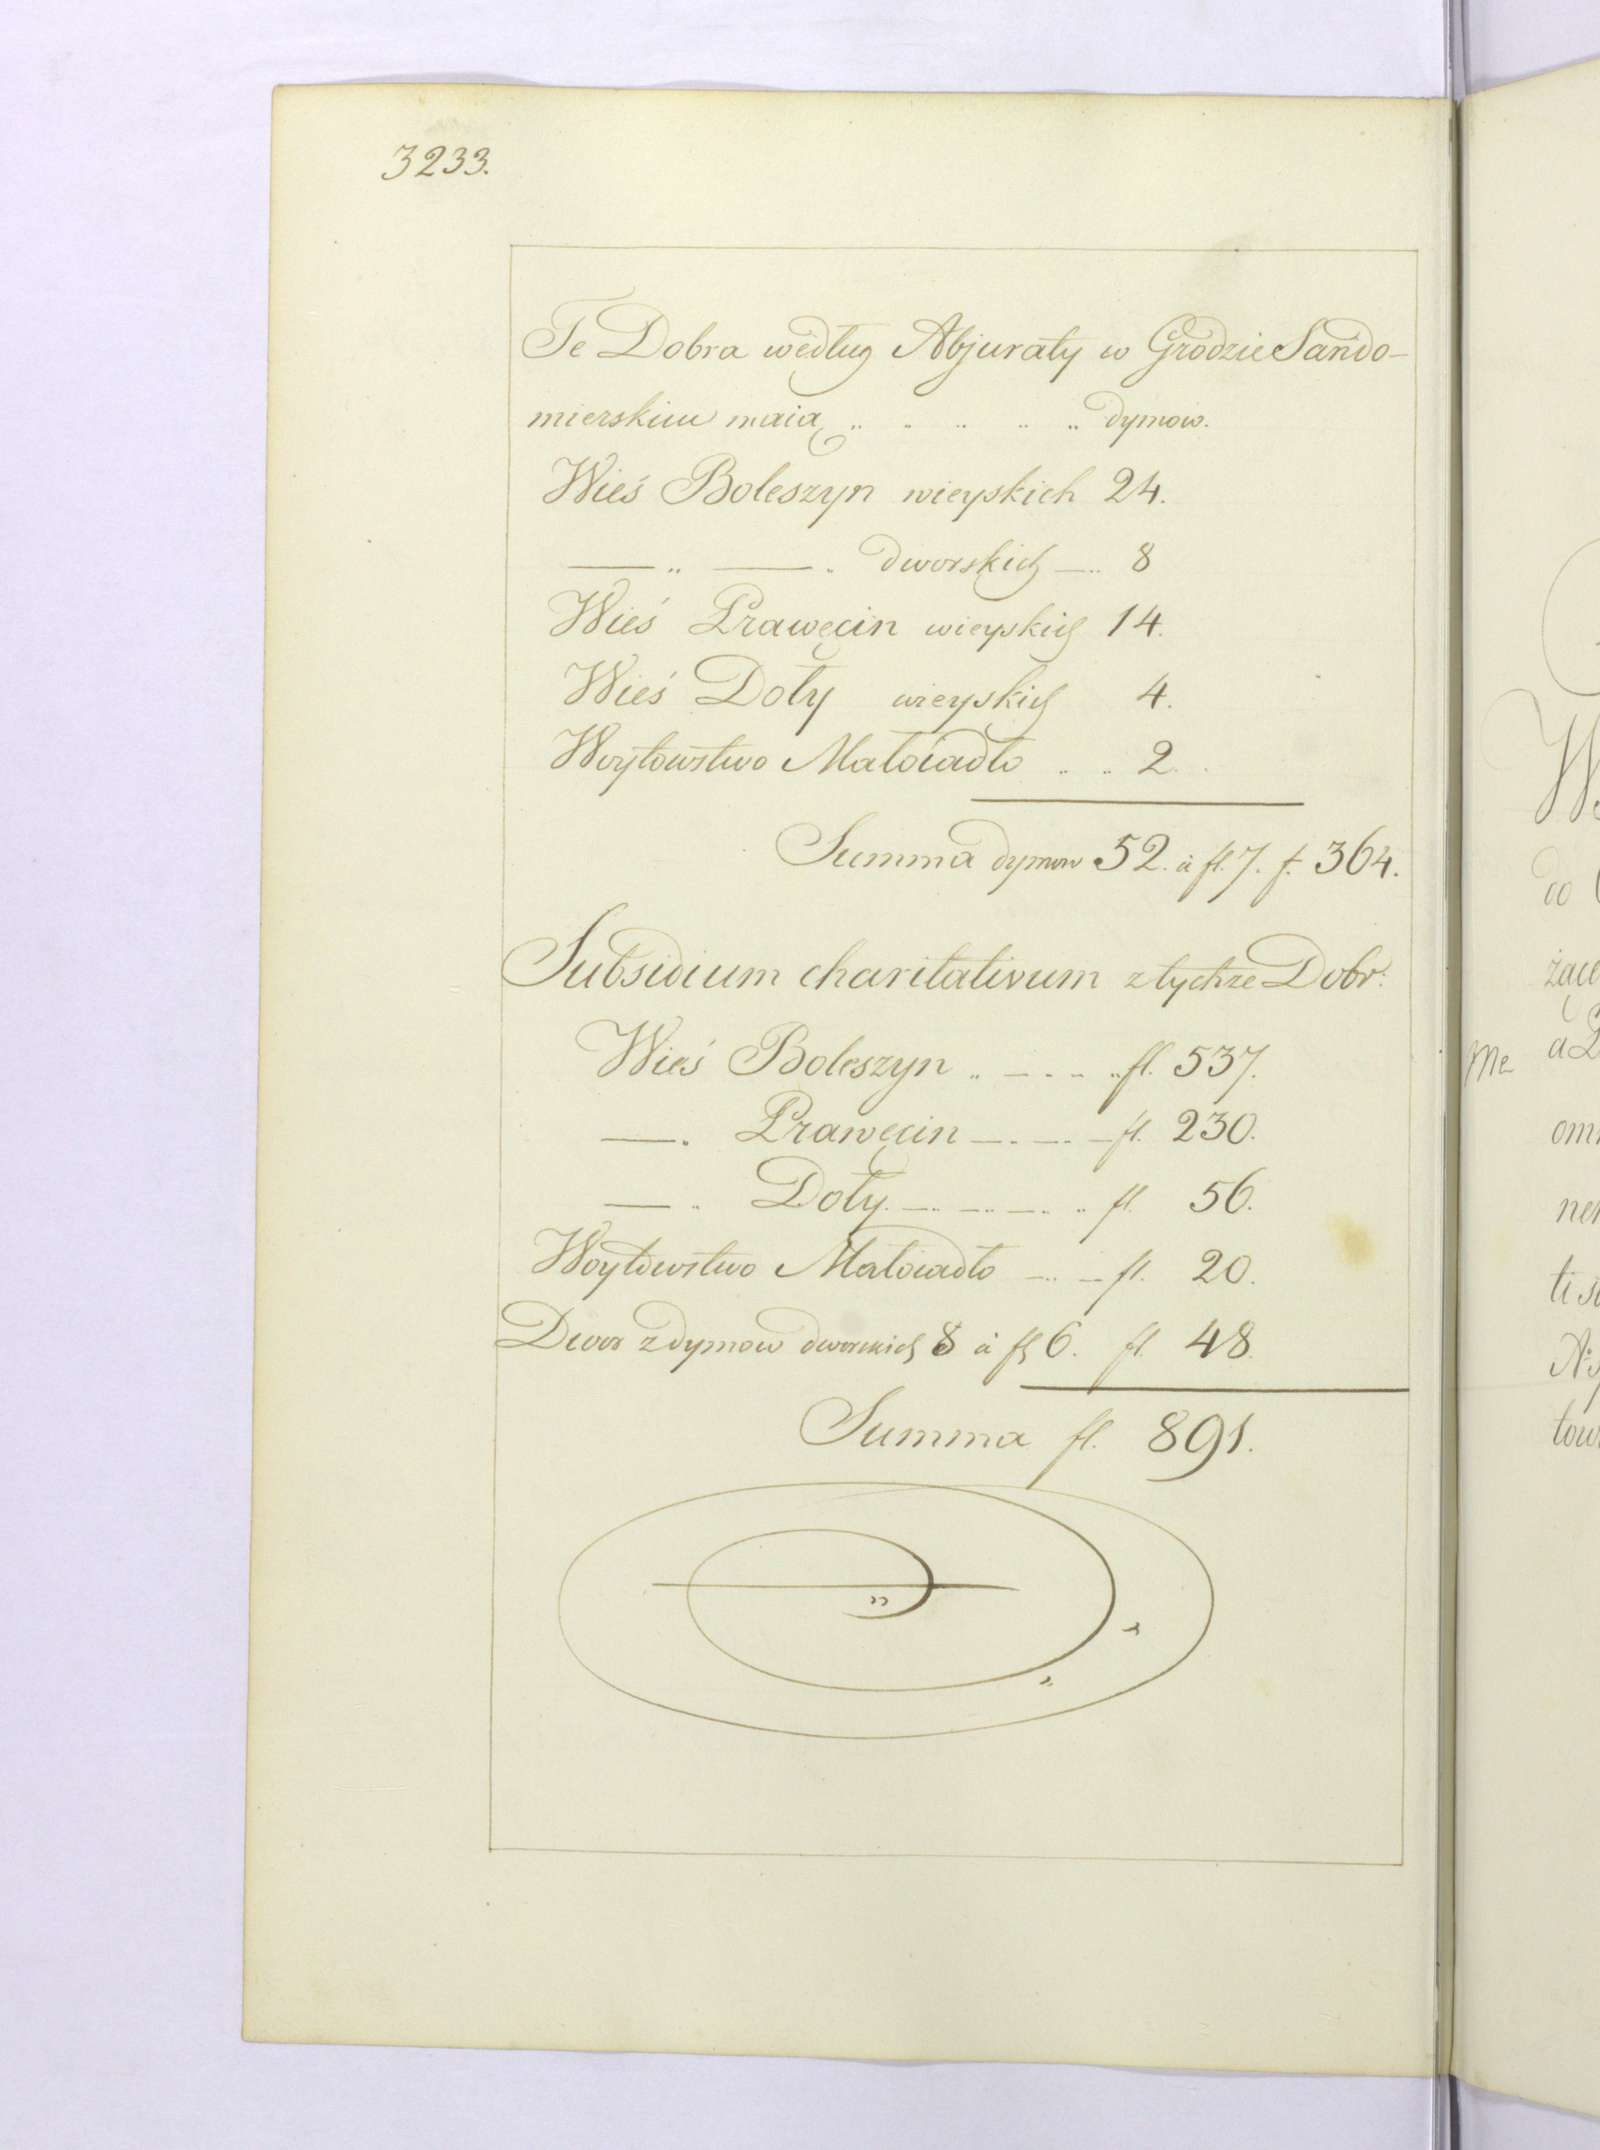 3233.
Te Dobra według Abjuraty w Grodzie Sando-
mierskim maią .. .. .. .. .. dymow.
Wieś Boleszyn wieyskich 24.
— .. — .. dworskich — .. 8
Wieś Prawęcin wieyskich 14.
Wieś Doły wieyskich 4.
Woytowstwo Małoiadło .. .. 2.
Summa dymow 52. à fl. 7. f. 364.
Subsidium charitativum z tychże Dobr:
Wieś Boleszyn .. — .. — .. fl. 537.
— . Prawęcin — . — . — fl. 230.
— .. Doły. — .. — .. — .. fl. 56.
Woytowstwo Małoiadło — .. — fl. 20.
Dwor z dymow dworskich 8 à fl 6. fl. 48.
Summa fl. 891.
W
do
żące
Me a
om
ner
ti
N:
tow